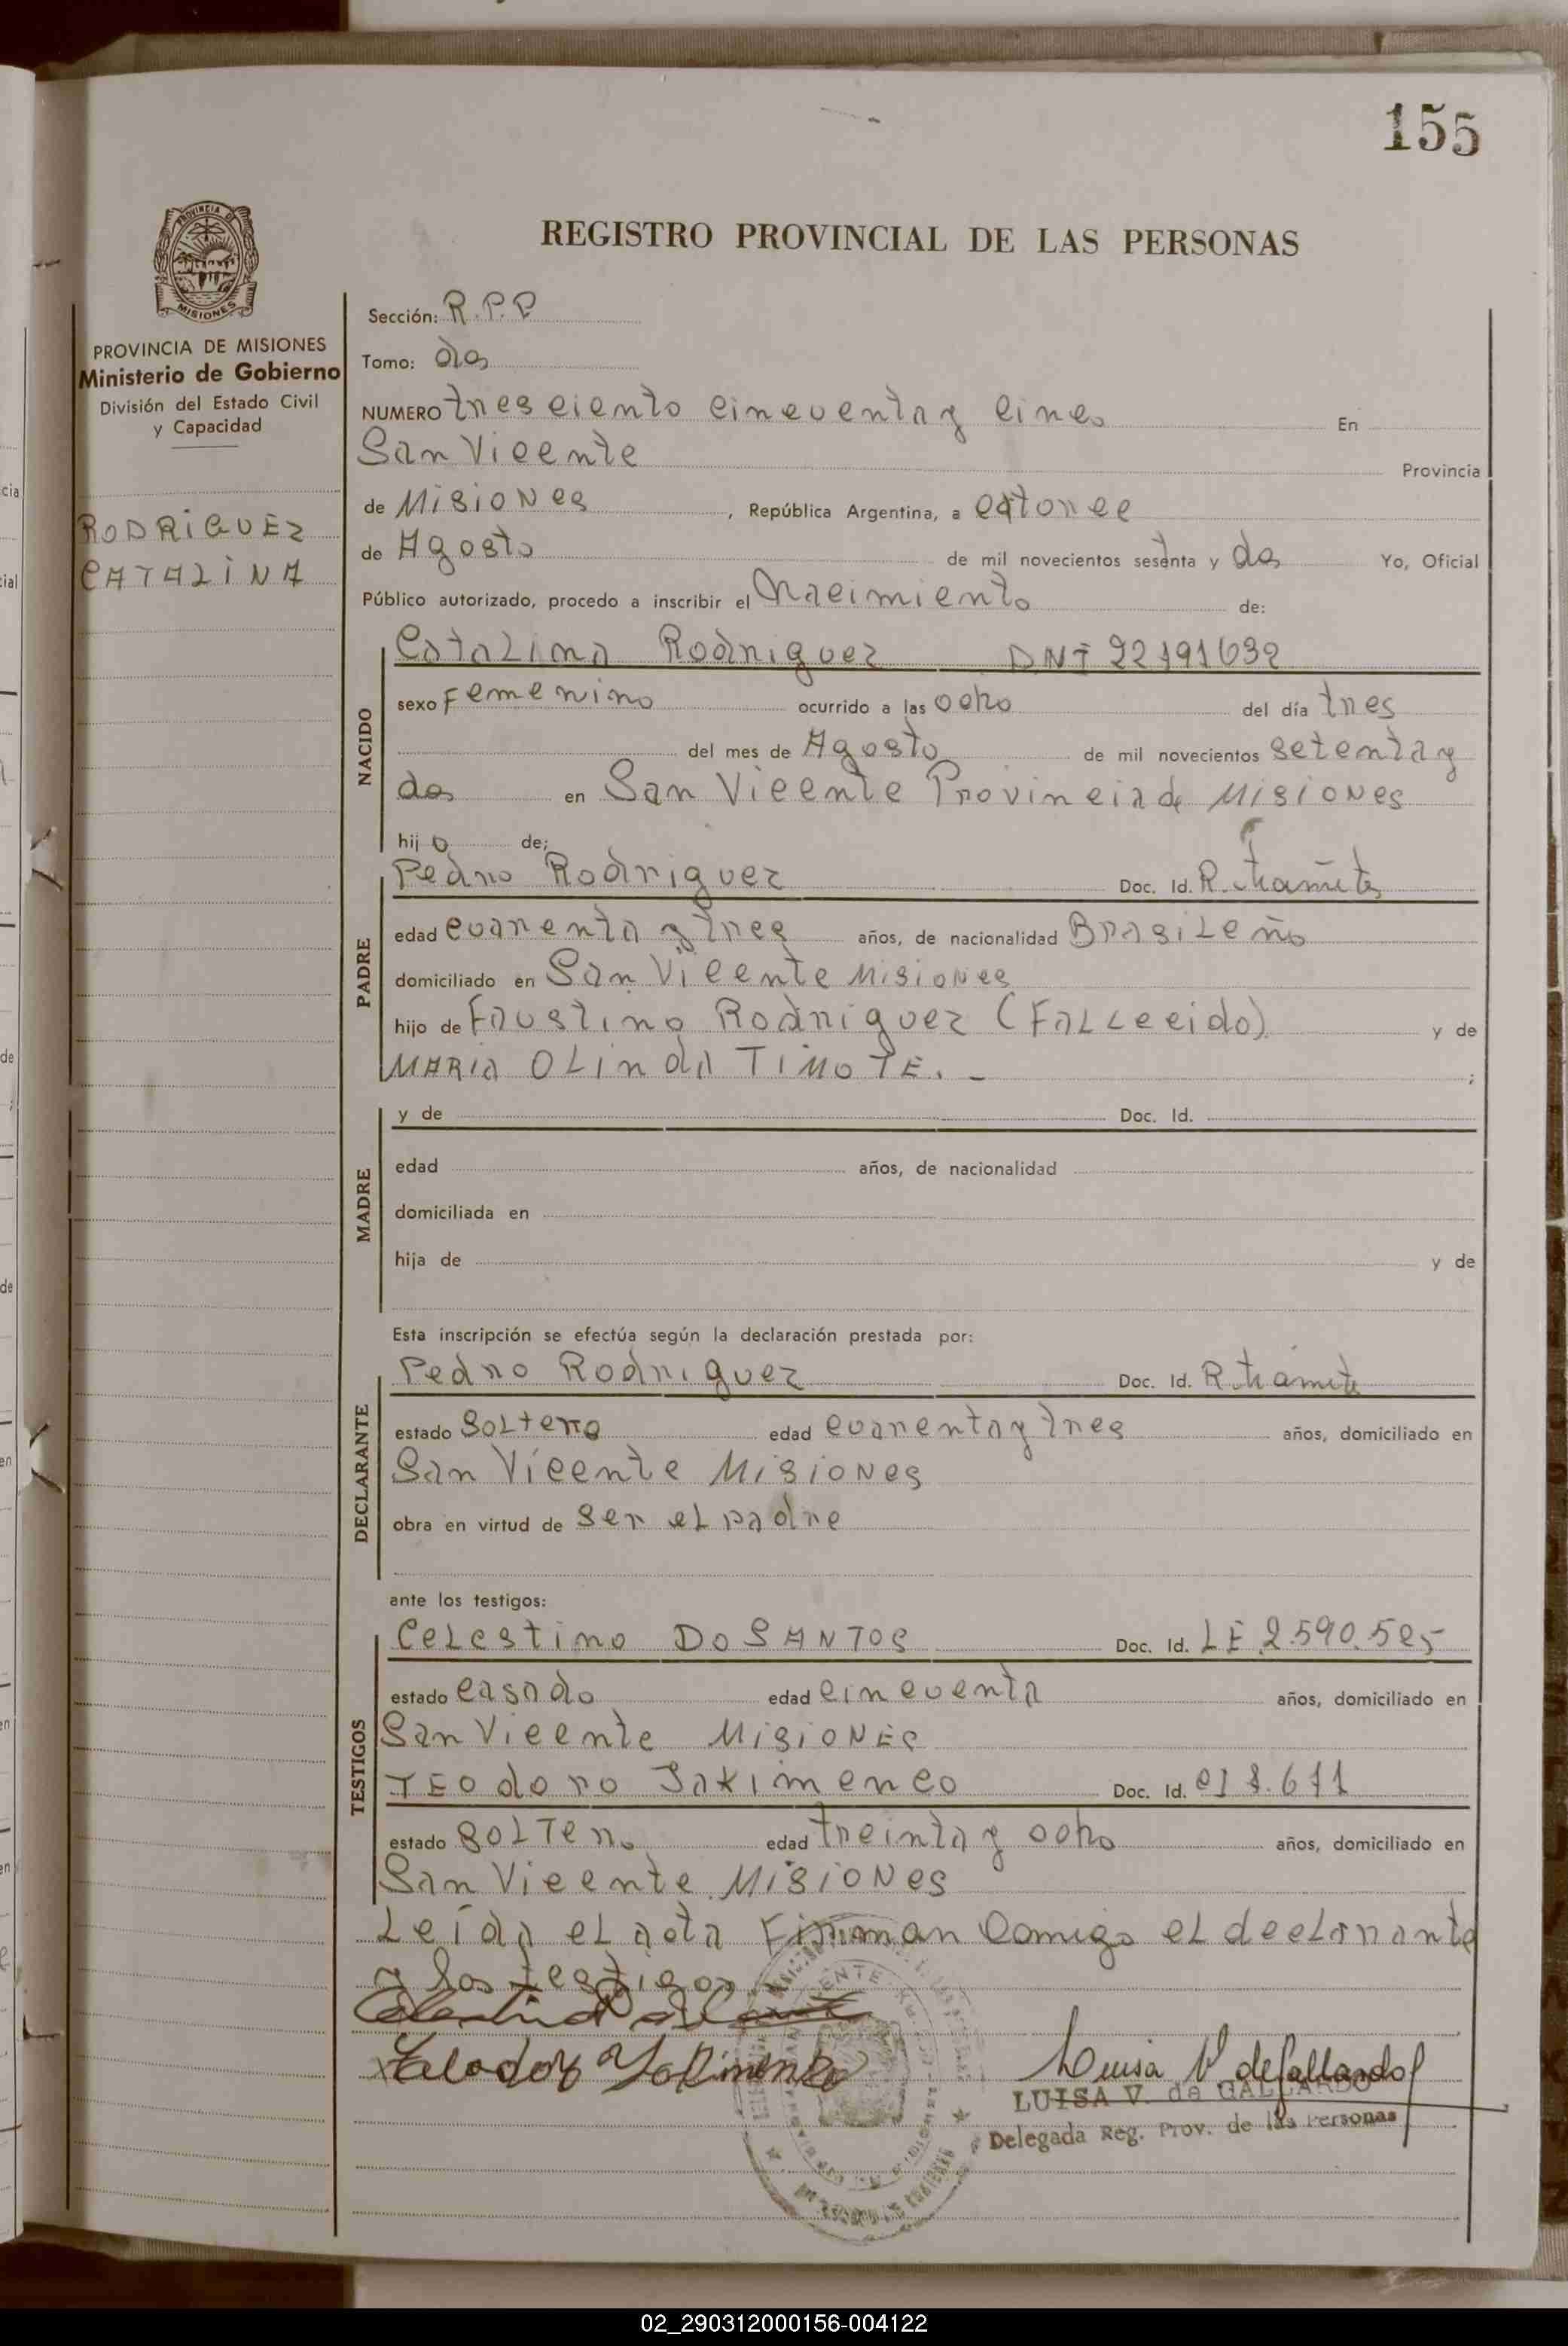 155
REGISTRO PROVINCIAL DE LAS PERSONAS
PROVINCIA DE MISIONES
Ministerio de Gobierno
División del Estado Civil
y Capacidad
RODRIGUEZ
CATALINA
Sección: R.P.P
Tomo: dos
NUMERO tres ciento cincuenta y cinco En
San Vicente Provincia
de Misiones, República Argentina, a catorce
de Agosto de mil novecientos sesenta y dos Yo, Oficial
Público autorizado, procedo a inscribir el Nacimiento de:
Catalina Rodriguez DNI 22191632
NACIDO
sexo Femenino ocurrido a las ocho del día tres
del mes de Agosto de mil novecientos setenta y
dos en San Vicente Provincia de Misiones
hijo de;
Pedro Rodriguez Doc. Id. R. trámite
PADRE
edad cuarenta y tres años, de nacionalidad Brasileño
domiciliado en San Vicente Misiones
hijo de Faustino Rodriguez (Fallecido) y de
MARIA OLinda TIMOTE. -;
MADRE
y de Doc. Id.
edad años, de nacionalidad
domiciliada en
hija de y de
Esta inscripción se efectúa según la declaración prestada por:
Pedro Rodriguez Doc. Id. R. trámite
DECLARANTE
estado Soltero edad cuarenta y tres años, domiciliado en
San Vicente Misiones
obra en virtud de ser el padre
ante los testigos:
Celestino Do SANTOS Doc. Id. LE 2.590.525
TESTIGOS
estado casado edad cincuenta años, domiciliado en
San Vicente MisioNES
TEodoro Jakimenco Doc. Id.
estado Soltero edad treinta y ocho años, domiciliado en
San Vicente Misiones
Leída el acta Firman Comigo el declarante
y los testigos
Luisa V de Gallardo
LUISA V. de GALLARDO
Delegada Reg. Prov. de las Personas
02_290312000156-004122